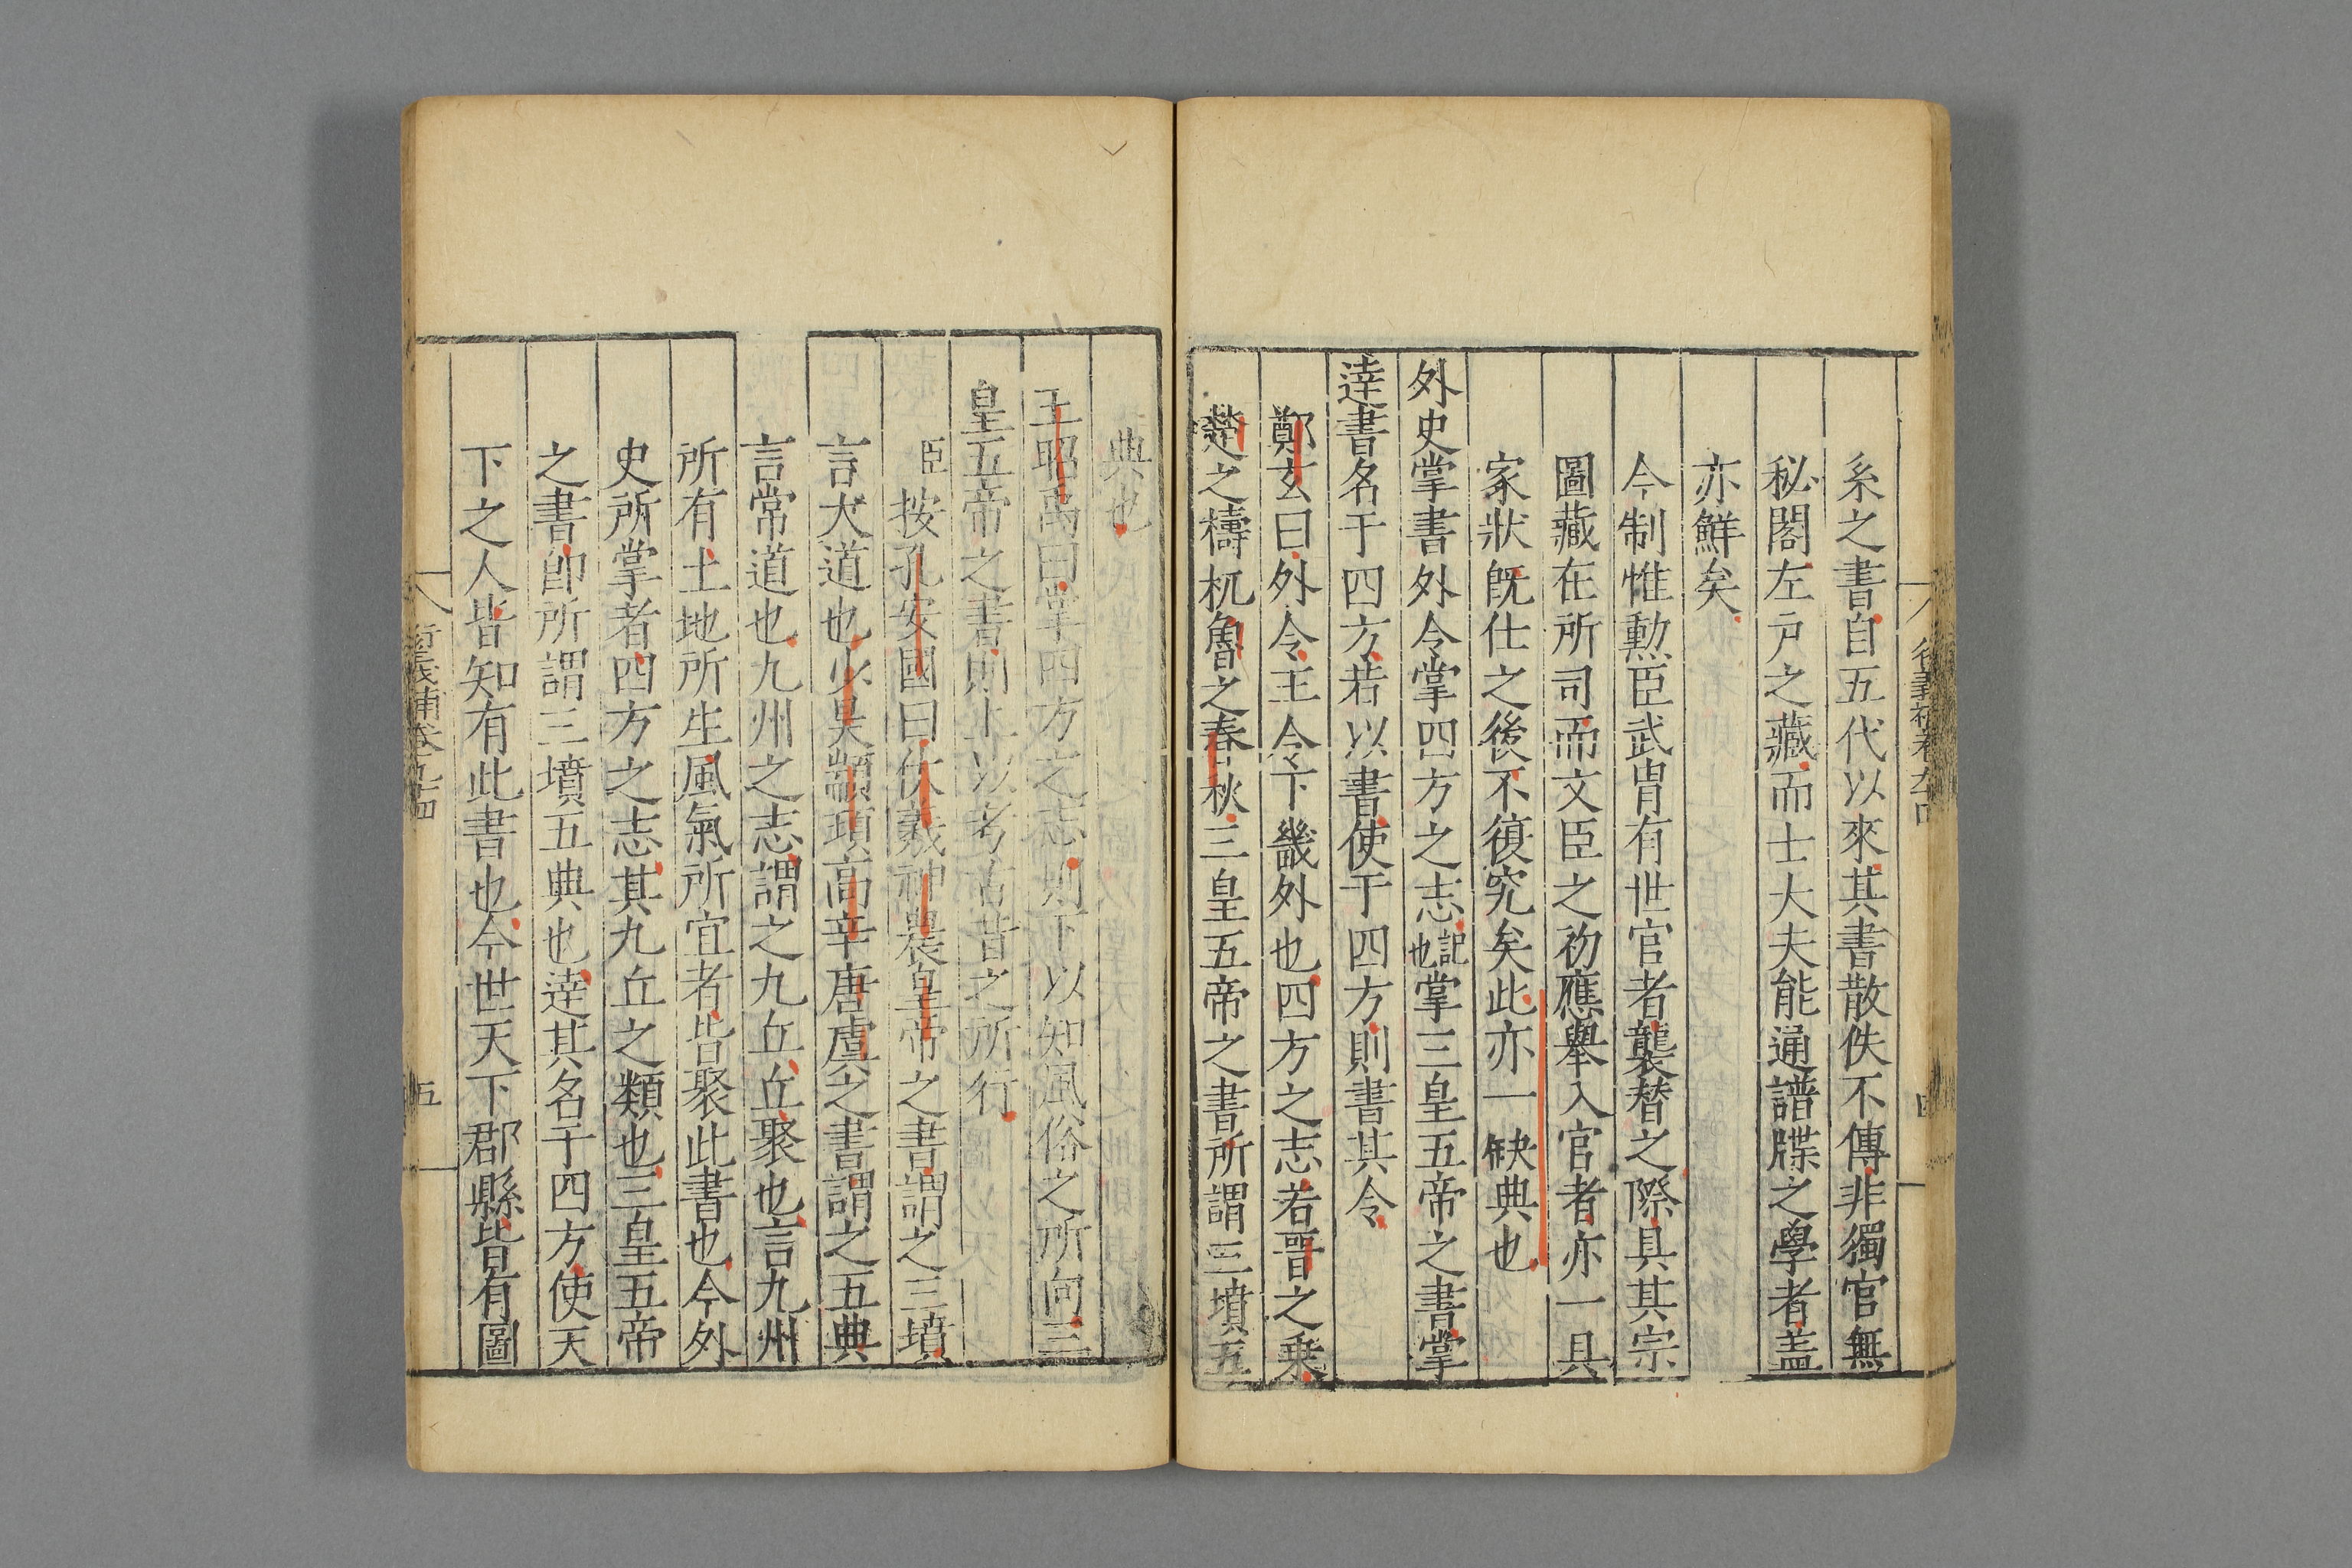 系之書自五代以來其書散佚不傳非獨官無
秘閣左戶之藏而士大夫能通譜牒之學者蓋
亦鮮矣
今制惟勳臣武冑有世官者襲替之際具其宗
圖藏在所司而文臣之初應舉入官者亦一具
家狀既仕之後不復究矣此亦一缺典也
外史掌書外令掌四方之志記也掌三皇五帝之書掌
達書名于四方若以書使于四方則書其令
鄭玄曰外令王令下畿外也四方之志若晉之乗
楚之檮杌魯之春秋三皇五帝之書所謂三墳五
典也
王昭禹曰掌四方之志則下以知風俗之所向三
皇五帝之書則上以考古昔之所行
臣按孔安國曰伏羲神農皇帝之書謂之三墳
言大道也少昊顓頊高辛唐虞之書謂之五典
言常道也九州之志謂之九丘丘聚也言九州
所有土地所生風氣所宜者皆聚此書也今外
史所掌者四方之志其九丘之類也三皇五帝
之書卽所謂三墳五典也達其名于四方使天
下之人皆知有此書也今世天下郡縣皆有圖
五